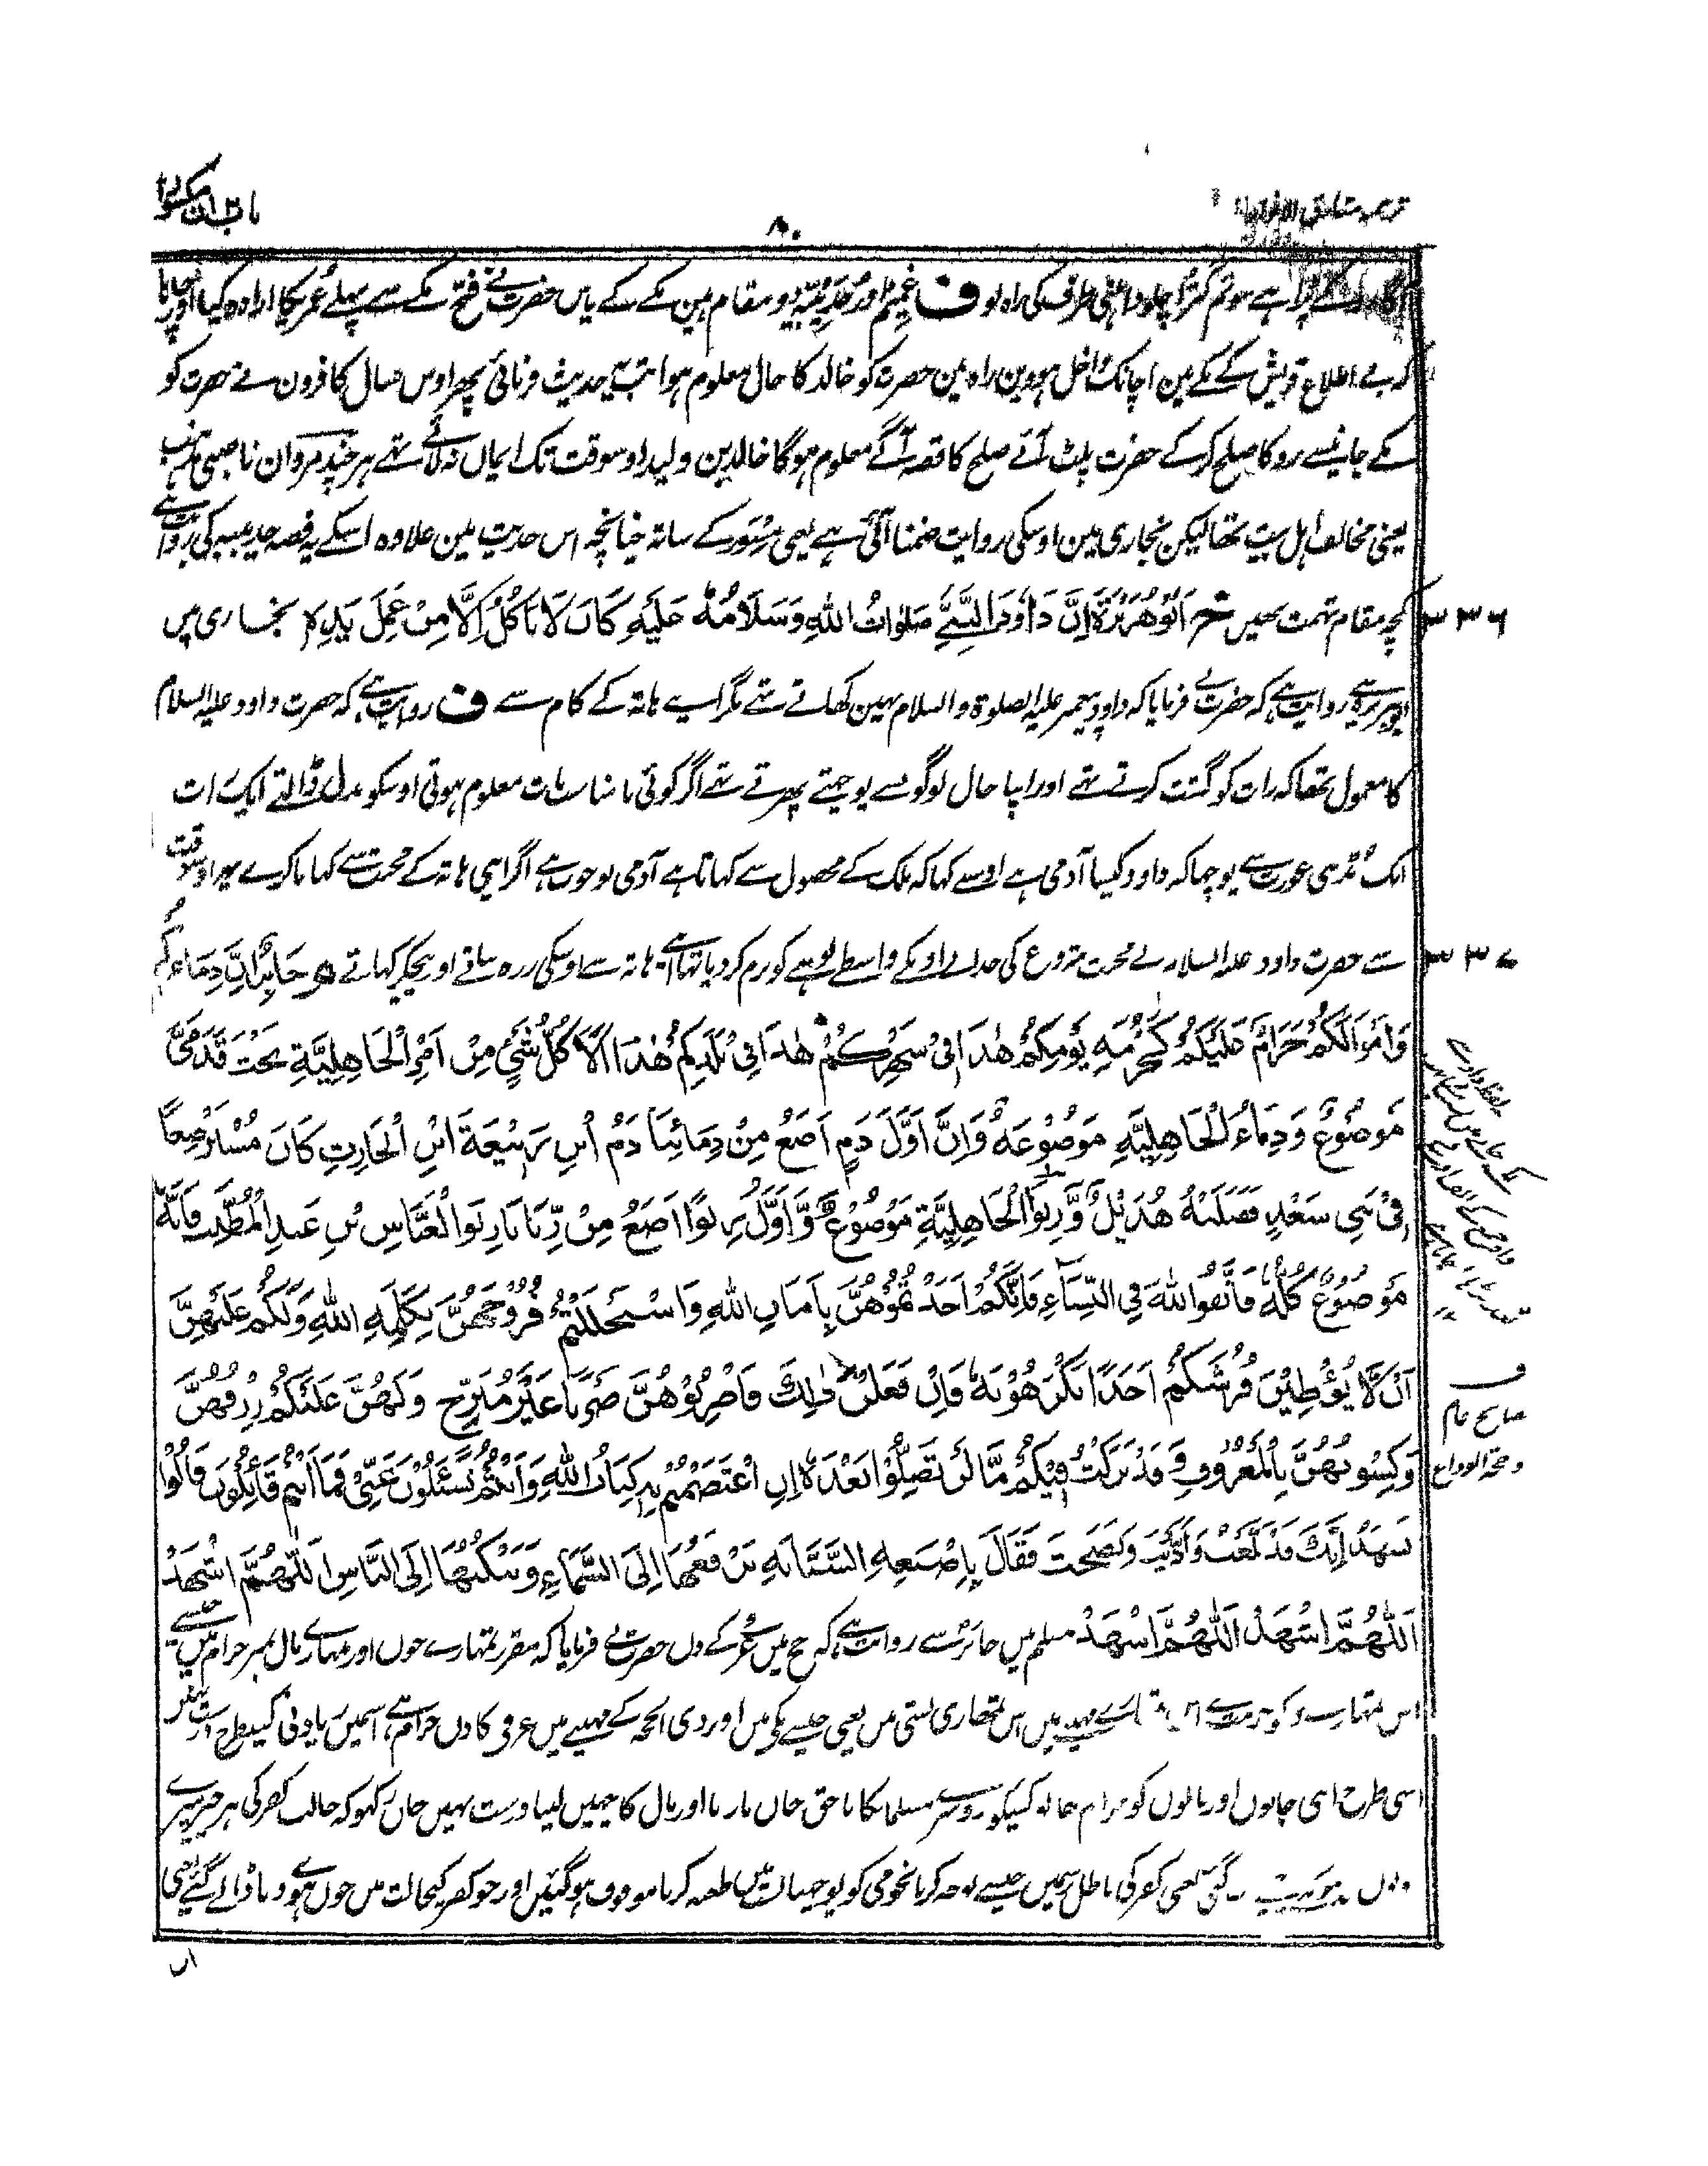 ترجمہ مشارق الانوار
۸۰
باب ان مکسورہ
پڑا ہے سو تم کترا چلو داہنی طرف کی راہ لو ف غمیم اور حدیبیہ دو مقام ہین مکے کے پاس حضرت نے فتح مکے سے پہلے عمریکا ارادہ کیا اور چاہا
کہ بے اطلاع قریش کے مکے مین اچانک داخل ہووین راہ مین حضرت کو خالد کا حال معلوم ہوا تب یہ حدیث فرمائی پھر اوس سال کافرون نے حضرت کو
مکے جانیسے روکا صلح کرکے حضرت پلٹ آئے صلح کا قصہ آگے معلوم ہوگا خالد بن ولید اوسوقت تک ایمان نہ لائے تھے ہر چند مروان ناصبی مذہب
یعنی مخالف اہل بیت تھا لیکن بخاری مین اوسکی روایت ضمنا آئی ہے یعنی مسور کے ساتھ چنانچہ اس حدیث مین علاوہ اسکے یہ قصہ حدیبیہ کی روایت ہے
۳۳۶
کچھ مقام تہمت نہیں خ اَبُوْ هُرَيْرَةَ اِنَّ دَاوٗدَ النَّبِيَّ صَلَوَاتُ اللهِ وَسَلَامُهٗ عَلَيْهِ كَانَ لَا يَاْكُلُ اِلَّا مِنْ عَمَلِ يَدِهٖ بخاری میں
ابوہریرہ سے روایت ہے کہ حضرت نے فرمایا کہ داود پیغمبر علیہ الصلوۃ والسلام نہین کھاتے تھے مگر اپنے ہاتھ کے کام سے ف روایت ہے کہ حضرت داود علیہ السلام
کا معمول تھا کہ رات کو گشت کرتے تھے اور اپنا حال لوگوسے پوچھتے پھرتے تھے اگر کوئی نامناسب بات معلوم ہوتی اوسکو بدل ڈالتے ایک رات
ایک بڈھی عورت سے پوچھا کہ داود کیسا آدمی ہے اوسنے کہا کہ ملک کے محصول سے کھاتا ہے آدمی تو خوب ہے اگر اپنی ہاتھ کے محنت سے کھایا کرے پھر اوسوقت
۳۳۷
سے حضرت داود علیہ السلام نے محنت شروع کی خدا نے اونکے واسطے لوہے کو نرم کر دیا تھا اپنے ہاتھ سے اوسکی زرہ بناتے اور بیچکر کھاتے م جَابِرٌ اِنَّ دِمَاءَكُمْ
وَاَمْوَالَكُمْ حَرَامٌ عَلَيْكُمْ كَحُرْمَةِ يَوْمِكُمْ هٰذَا فِيْ شَهْرِكُمْ هٰذَا فِيْ بَلَدِكُمْ هٰذَا اَلَا كُلُّ شَيْءٍ مِنْ اَمْرِ الْجَاهِلِيَّةِ تَحْتَ قَدَمَيَّ
مَوْضُوْعٌ وَدِمَاءُ الْجَاهِلِيَّةِ مَوْضُوْعَةٌ وَاِنَّ اَوَّلَ دَمٍ اَضَعُ مِنْ دِمَائِنَا دَمُ ابْنِ رَبِيْعَةَ ابْنِ الْحَارِثِ كَانَ مُسْتَرْضِعًا
فِيْ بَنِيْ سَعْدٍ فَقَتَلَتْهُ هُذَيْلٌ وَرِبَوا الْجَاهِلِيَّةِ مَوْضُوْعٌ وَّاَوَّلُ رِبًوا اَضَعُ مِنْ رِّبَانَا رِبَوا الْعَبَّاسِ بْنِ عَبْدِ الْمُطَّلِبِ فَاِنَّهٗ
مَوْضُوْعٌ كُلُّهٗ فَاتَّقُوا اللهَ فِي النِّسَاءِ فَاِنَّكُمْ اَخَذْتُمُوْهُنَّ بِاَمَانِ اللهِ وَاسْتَحْلَلْتُمْ فُرُوْجَهُنَّ بِكَلِمَةِ اللهِ وَلَكُمْ عَلَيْهِنَّ
اَنْ لَّا يُوْطِيْنَ فُرُشَكُمْ اَحَدًا تَكْرَهُوْنَهٗ فَاِنْ فَعَلْنَ ذٰلِكَ فَاضْرِبُوْهُنَّ ضَرْبًا غَيْرَ مُبَرِّحٍ وَلَهُنَّ عَلَيْكُمْ رِزْقُهُنَّ
وَكِسْوَتُهُنَّ بِالْمَعْرُوْفِ وَقَدْ تَرَكْتُ فِيْكُمْ مَّا لَنْ تَضِلُّوْا بَعْدَهٗ اِنِ اعْتَصَمْتُمْ بِهٖ كِتَابُ اللهِ وَاَنْتُمْ تُسْئَلُوْنَ عَنِّيْ فَمَا اَنْتُمْ قَائِلُوْنَ قَالُوْا
نَشْهَدُ اِنَّكَ قَدْ بَلَّغْتَ وَاَدَّيْتَ وَنَصَحْتَ فَقَالَ بِاِصْبَعِهِ السَّبَّابَةِ يَرْفَعُهَا اِلَى السَّمَاءِ وَيَنْكُتُهَا اِلَى النَّاسِ اَللّٰهُمَّ اشْهَدْ
اَللّٰهُمَّ اشْهَدْ اَللّٰهُمَّ اشْهَدْ مسلم میں جابر سے روایت ہے کہ حج میں عرفے کے دن حضرت نے فرمایا کہ مقرر تمہارے خون اور تمہارے مال تمپر حرام ہیں جیسے
اس تمہارے مہینے میں اس تمھاری بستی میں یعنی جیسے مکے میں اور ذی الحجہ کے مہینے میں عرفے کا دن حرام ہے اسمیں زیادتی کسیطرح درست نہیں
اسی طرح اپنی جانوں اور مالوں کو حرام جانو کسیکو دوسرے مسلمانکا ناحق جان مارنا اور مال کا چھین لینا درست نہیں جان رکھو کہ حالت کفر کی ہر چیز میرے
گئی یعنی کفر کی باطل رسمیں جیسے نوحہ کرنا نجومی کو پوچھنا نسب میں طعنہ کرنا موقوف ہوگئیں اور جو کفر کیحالت میں خون ہوے دباڈالے گئے یعنی
ف
صایح عام
وحجۃ الوداع
اب